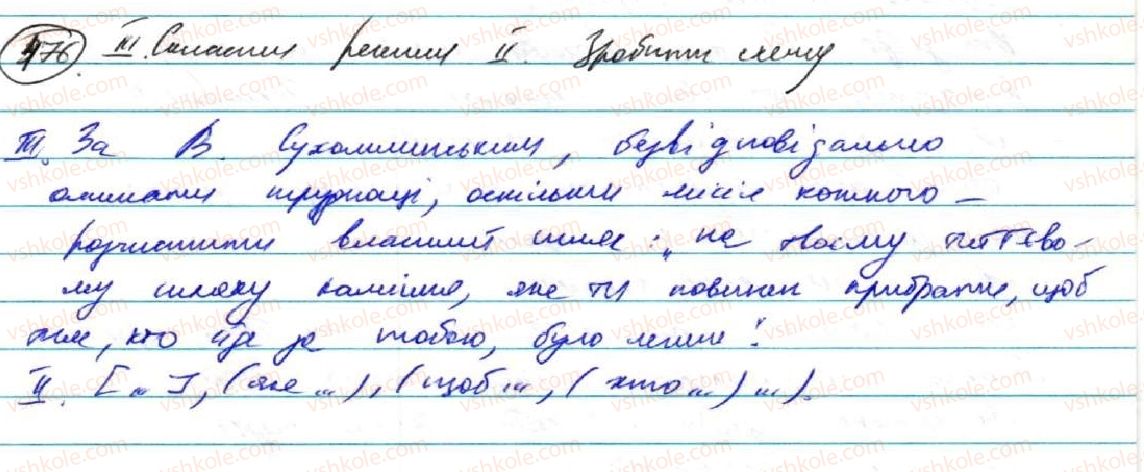 476. III. Скласти речення II. Зробити схему
III. За В. Сухомлинським, безвідповідально
оминати труднощі, оскільки місія кожного –
розчистити власний шлях: „на твоєму життєво-
му шляху каміння, яке ти повинен прибрати, щоб
тим, хто йде за тобою, було легше!
II. [...], (яке ...), (щоб ..., (хто ...) ...).